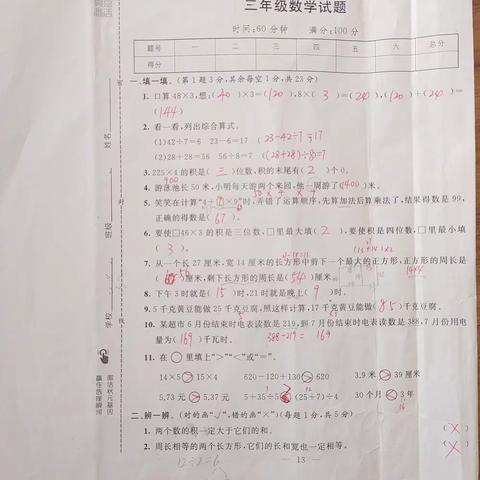 三年级数学试题
时间:60分钟 满分:100分
题号 一 二 三 四 五 六 总分
得分
一、填一填。(第1题3分,其余每空1分,共23分)
1. 口算48×3,想:(40)×3=(120),8×(3)=(24),(120)+(24)=
(144)
2. 看一看,列出综合算式。
(1)42÷7=6 23-6=17 (23-42÷7=17)
(2)28+28=56 56÷8=7 ((28+28)÷8=7)
3. 225×4的积是(三)位数,积的末尾有(2)个0。
900
4. 游泳池长50米,小明每天游两个来回,他一周游了(1400)米。
5. 笑笑在计算"4+□×9"时,弄错了运算顺序,先算加法后算乘法了,结果得数是99,
正确的得数是(67)。
6. 要使□46×3的积是三位数,□里最大填(2),要使积是四位数,□里最小填
(3)。
7. 从一个长27厘米,宽14厘米的长方形中剪下一个最大的正方形,正方形的周长是
(56)厘米,剩下长方形的周长是(54)厘米。
14×4
8. 下午3时就是(15)时,21时就是晚上(9)时。
9. 5千克黄豆能做25千克豆腐,照这样计算,17千克黄豆能做(85)千克豆腐。
10. 某超市6月份结束时电表读数是219,到7月份结束时电表读数是388,7月份用电
量为(169)千瓦时。 388-219=169
11. 在○里填上">""<"或"="。
14×5 15×4 620-120+130 620 3.9米 39厘米
5.73元 5.37元 5+35÷5 (25+7)÷4 30个月 3年
二、辨一辨。(对的画"√",错的画"×")(每题1分,共5分)
1. 两个数的积一定大于它们的和。 (×)
2. 周长相等的两个长方形,它们的长和宽也一定相等。 (×)
12÷2=6
— 13 —
姓名
班级
学校